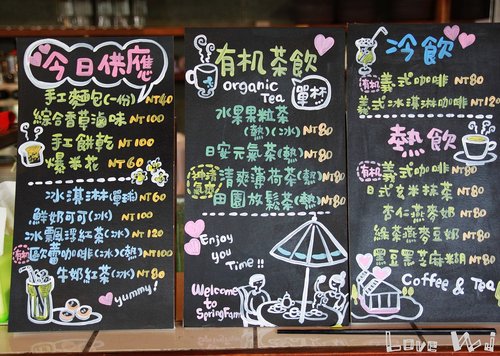 今日供應
手工麵包(一份) NT40
綜合香草滷味 NT100
手工餅乾 NT100
爆米花 NT60
冰淇淋(單球) NT60
鮮奶可可(冰) NT100
冰飄浮紅茶(冰) NT120
有机歐蕾咖啡(冰)(熱) NT100
牛奶紅茶(冰) NT80
yummy!
有机茶飲
organic Tea
單杯
水果果粒茶
(熱)(冰) NT80
日安元氣茶(熱) NT80
清爽薄荷茶(熱) NT80
田園放鬆茶(熱) NT80
Enjoy
you
Time!!
Welcome
to
SpringFarm
冷飲
有机義式咖啡 NT80
義式冰淇淋咖啡 NT120
熱飲
有机義式咖啡 NT80
日式玄米抹茶 NT80
杏仁燕麥奶 NT80
綠茶燕麥豆奶 NT80
黑豆黑芝麻米糊 NT80
Coffee & Tea